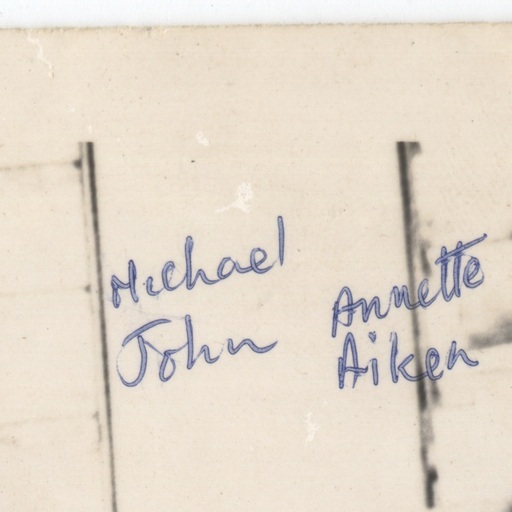 Michael
John
Annette
Aiken